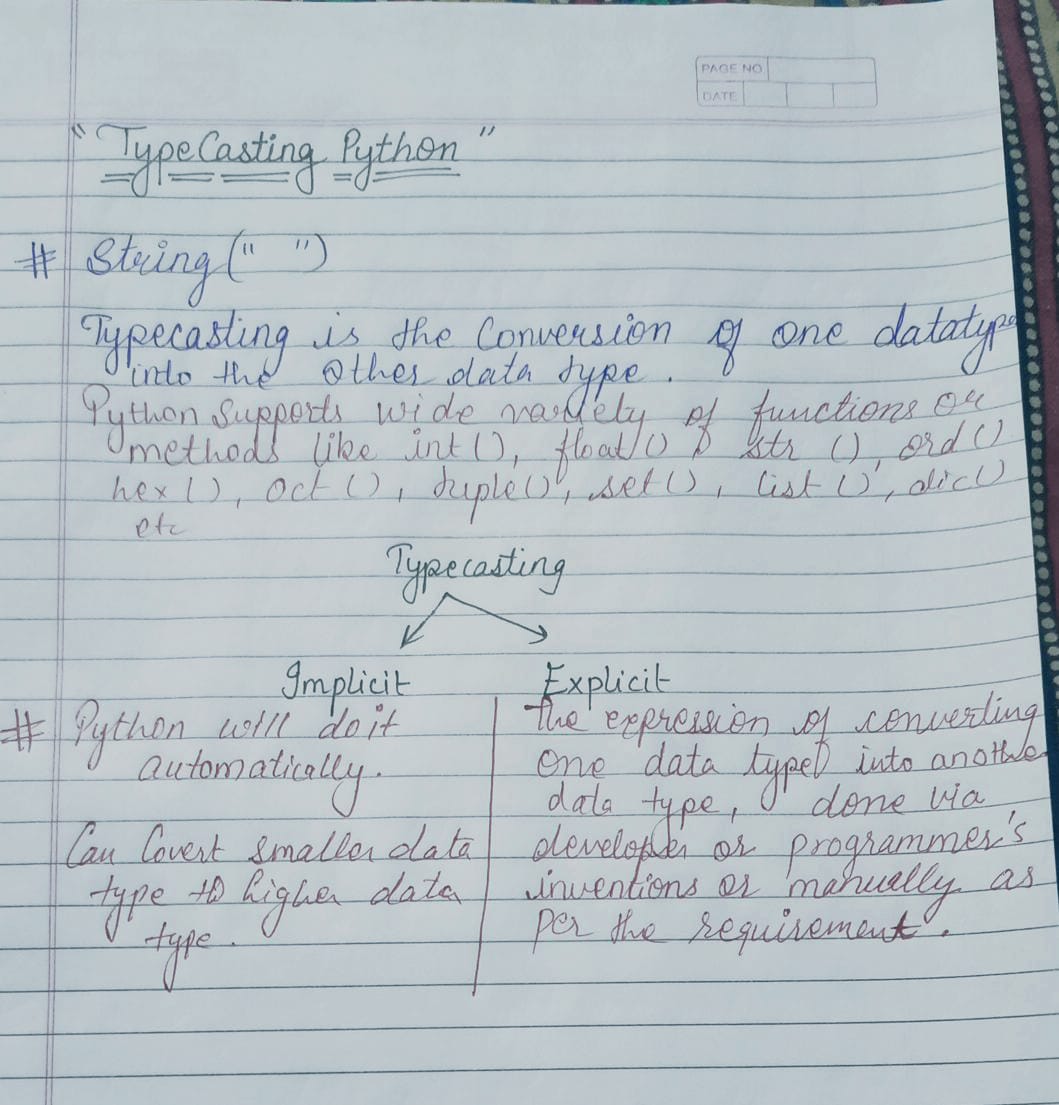 PAGE NO
DATE
" TypeCasting Python "
# String (" ")
Typecasting is the Conversion of one datatype
into the Other data type .
Python supports wide variety of functions or
methods like int (), float () , str () , ord ()
hex (), oct () , tuple() , set () , list () , dic()
etc
Typecasting
Implicit Explicit
# Python will do it
automatically.
Can Covert smaller data
type to higher data
type .
The expression of converting
One data type into another
data type, done via
developer or programmer's
inventions or manually as
per the requirement .